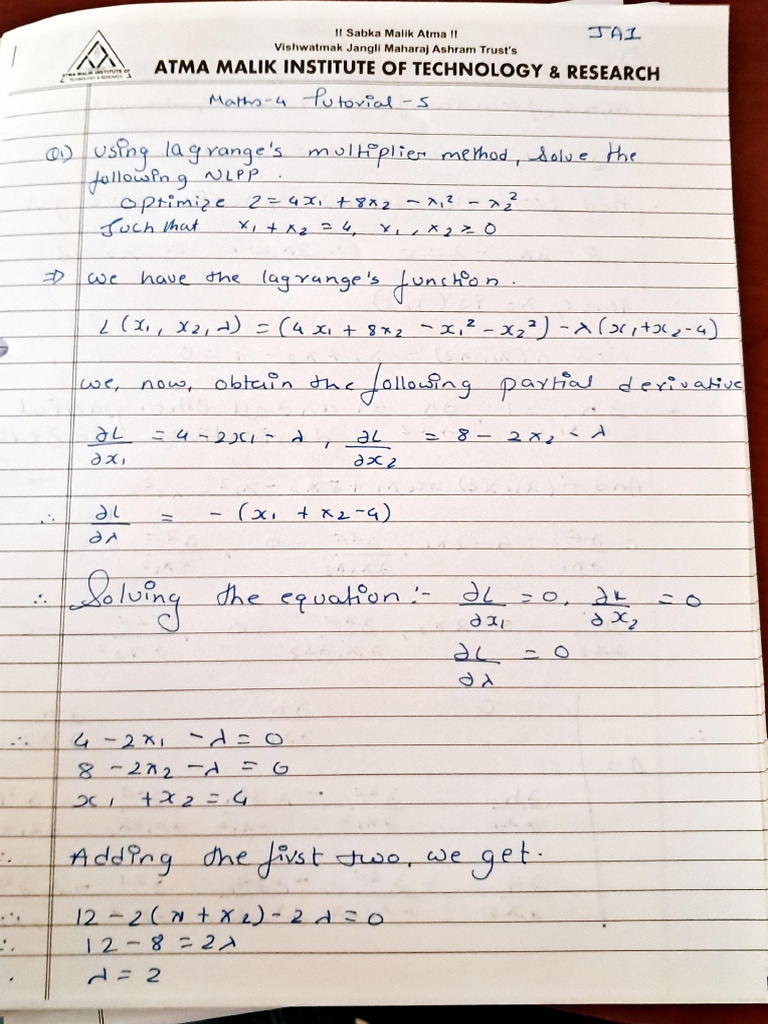 !! Sabka Malik Atma !!
JA1
Vishwatmak Jangli Maharaj Ashram Trust's
ATMA MALIK INSTITUTE OF TECHNOLOGY & RESEARCH
ATMA MALIK INSTITUTE OF
TECHNOLOGY & RESEARCH
Maths-4 Tutorial-5
Q.1) Using lagrange's multiplier method, Solve the
following NLPP.
optimize Z = 4x₁ + 8x₂ - x₁² - x₂²
Such that x₁ + x₂ = 4, x₁, x₂ ≥ 0
⇒ we have the lagrange's function.
L(x₁, x₂, λ) = (4x₁ + 8x₂ - x₁² - x₂²) - λ(x₁+x₂-4)
we, now, obtain the following partial derivative
∂L/∂x₁ = 4 - 2x₁ - λ, ∂L/∂x₂ = 8 - 2x₂ - λ
∴ ∂L/∂λ = - (x₁ + x₂ - 4)
∴ Solving the equation :- ∂L/∂x₁ = 0, ∂L/∂x₂ = 0
∂L/∂λ = 0
∴ 4 - 2x₁ - λ = 0
8 - 2x₂ - λ = 0
x₁ + x₂ = 4
∴ Adding the first two, we get.
∴ 12 - 2(x + x₂) - 2λ = 0
∴ 12 - 8 = 2λ
λ = 2